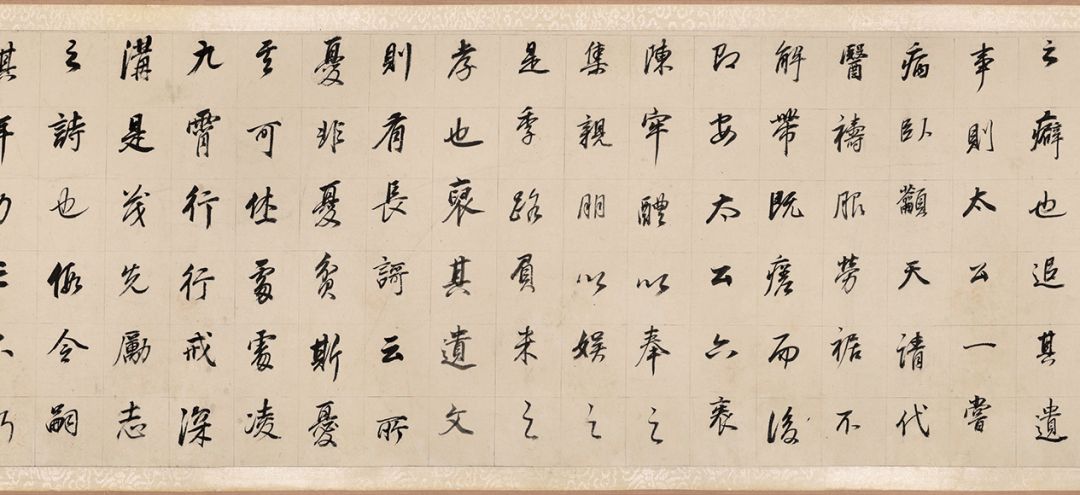 之癖也追其遺
事則太公一嘗
病臥籲天請代
醫禱服勞裾不
解帶既瘥而後
即安太公六袠
陳牢醴以奉之
集親朋以娛之
是季路負米之
孝也裒其遺文
則有長謌云所
憂非憂貧斯憂
可處處凌
九霄行行戒深
溝是茂先勵志
之詩也假令嗣
其